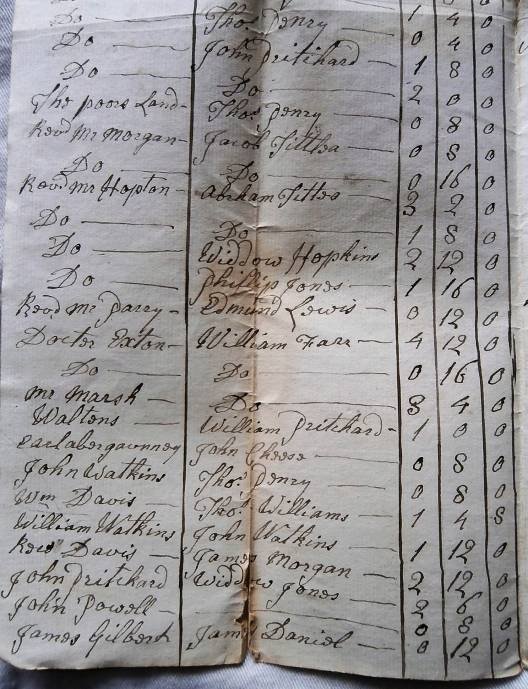 1 4 0
Do Thos Penry 0 4 0
Do John Pritchard 1 8 0
Do Do 2 0 0
The poors Land Thos Penry 0 8 0
Revd Mr Morgan Jacob Tittea 0 8 0
Do Do 0 16 0
Revd Mr Hopton Abraham Tittea 3 2 0
Do Do 1 8 0
Do Widdow Hopkins 2 12 0
Do Phillip Jones 1 16 0
Revd Mr Parry Edmund Lewis 0 12 0
Docter Eaton William Farr 4 12 0
Do Do 0 16 0
Mr Marsh Do 3 4 0
Waltons William Pritchard 1 0 0
Earlabergavonney John Cheese 0 8 0
John Watkins Thos Penry 0 8 0
Wm Davis Thos Williams 1 4 8
William Watkins John Watkins 1 12 0
Revd Davis James Morgan 2 12 0
John Pritchard Widdow Jones 2 6 0
John Powell 0 8 0
James Gilbert James Daniel 0 12 0